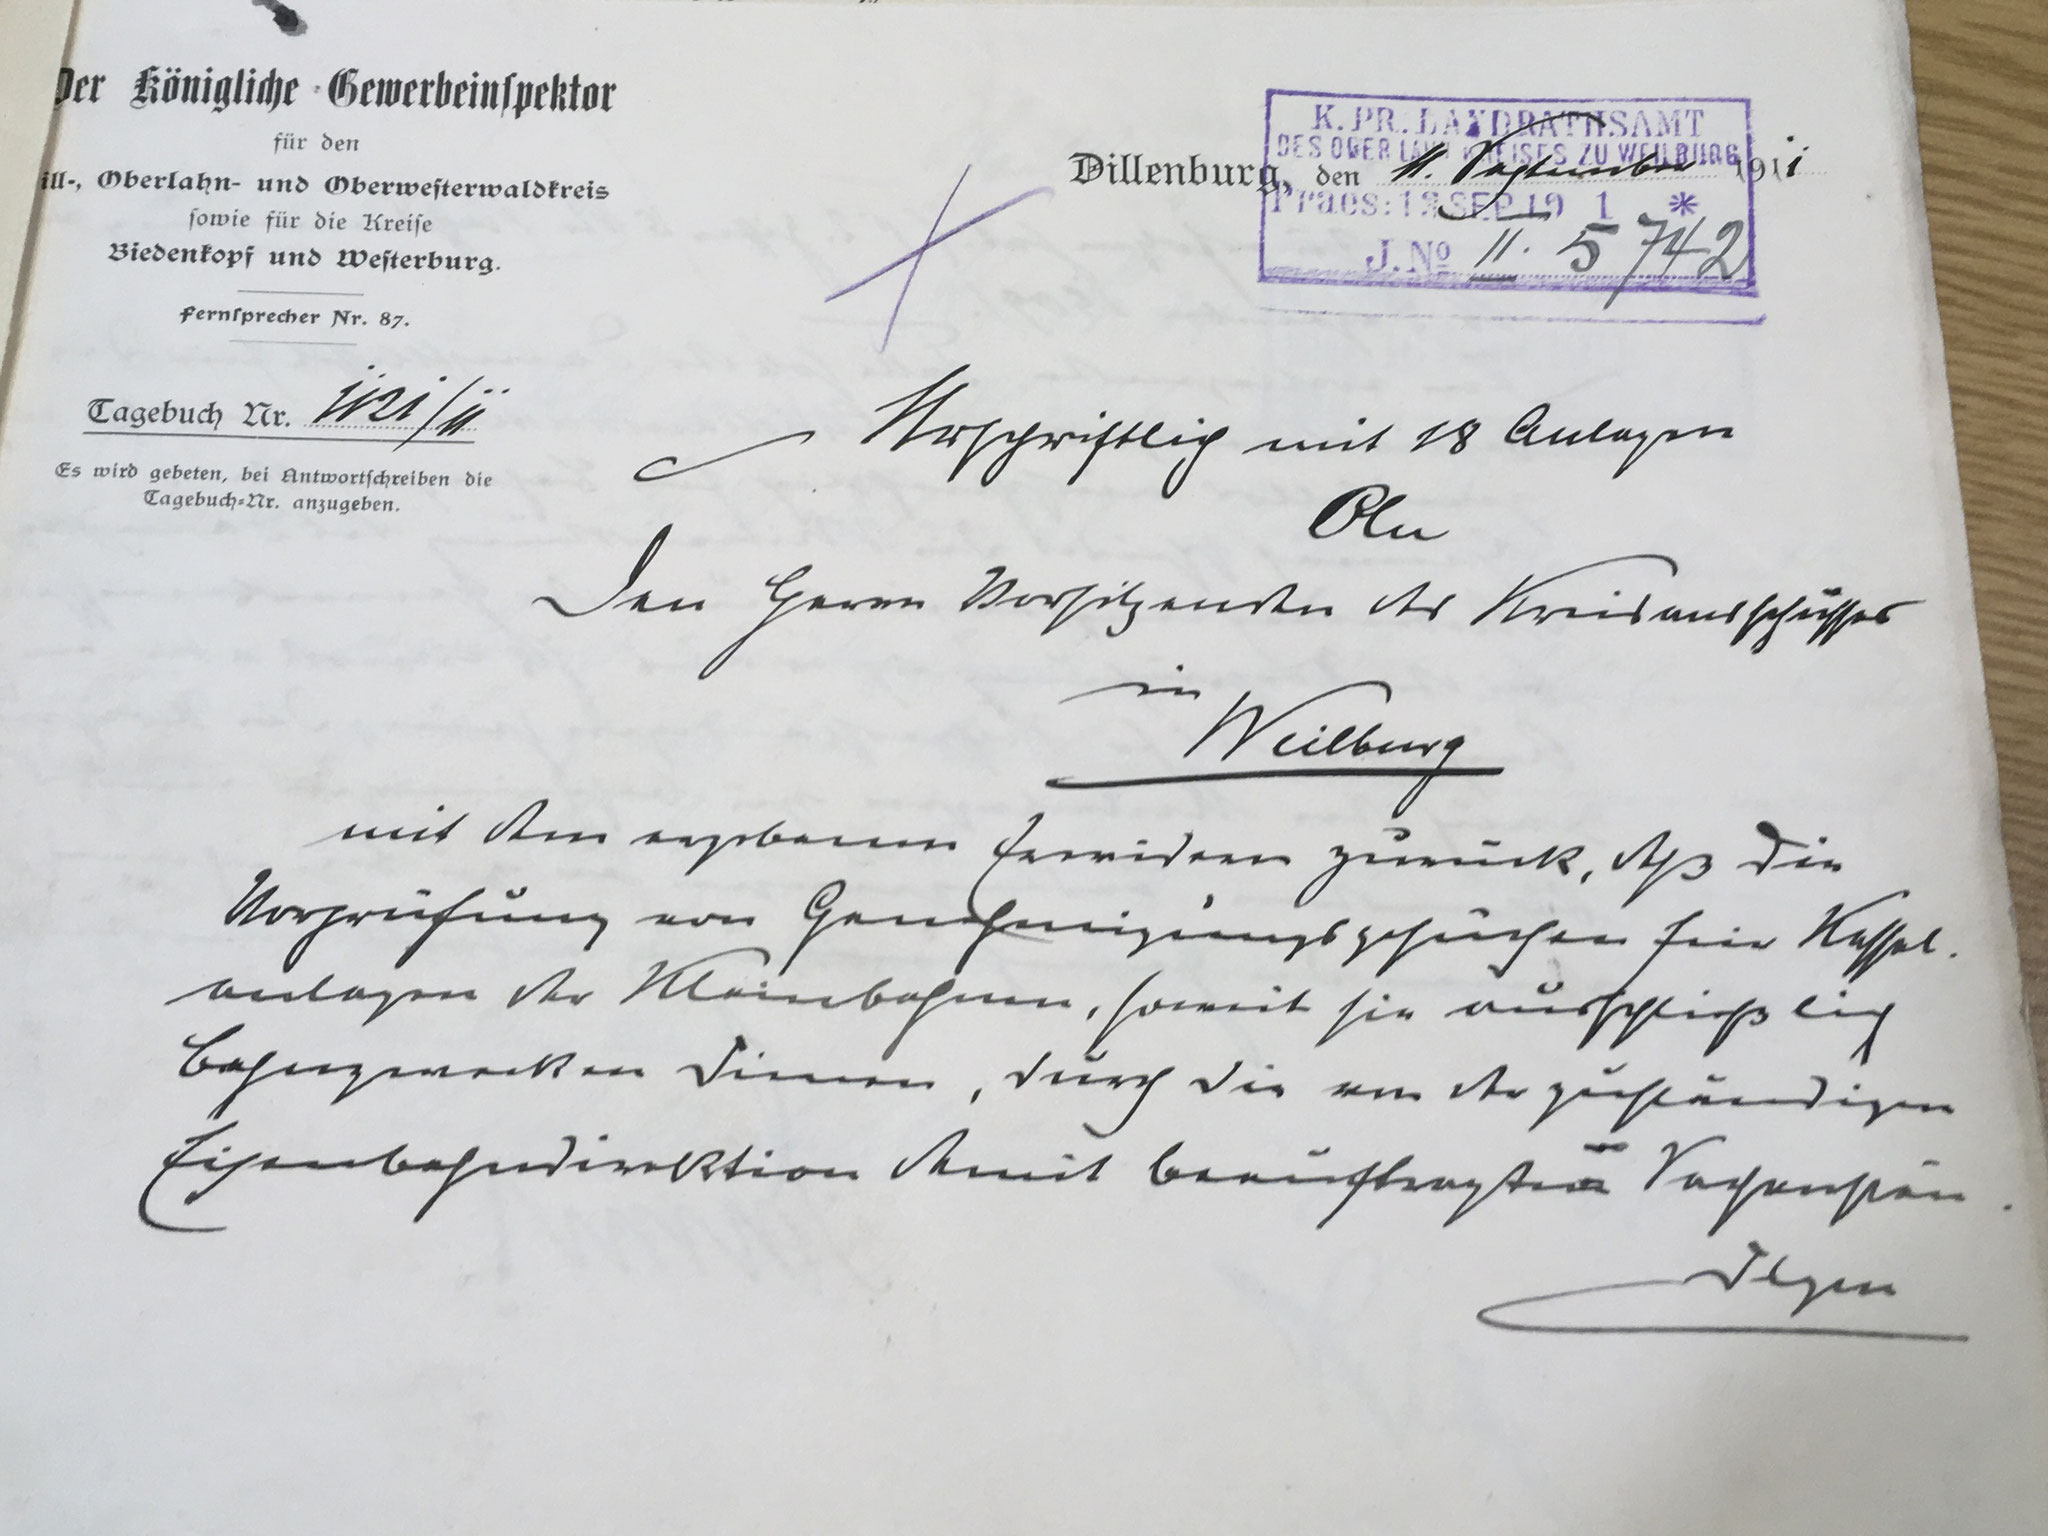 Der Königliche Gewerbeinspektor
für den
ill-, Oberlahn- und Oberwesterwaldkreis
sowie für die Kreise
Biedenkopf und Westerburg.
Fernsprecher Nr. 87.
Tagebuch Nr. 1121/11
Es wird gebeten, bei Antwortschreiben die
Tagebuch-Nr. anzugeben.
K. PR. LANDRATHSAMT
DES OBERLAHNKREISES ZU WEILBURG
Dillenburg, den 11. September 1911
Praes: SEP. 19 1 *
J. No II. 5742
Urschriftlich mit 18 Anlagen
An
Den Herrn Vorsitzenden des Kreisausschusses
in
Weilburg
mit dem ergebenen Erwidern zurück, daß die
Vorprüfung von Genehmigungsgesuchen für Kessel-
anlagen der Kleinbahnen, soweit sie ausschließlich
Bahnzwecken dienen, durch die von der zuständigen
Eisenbahndirektion damit beauftragten
Ilgen